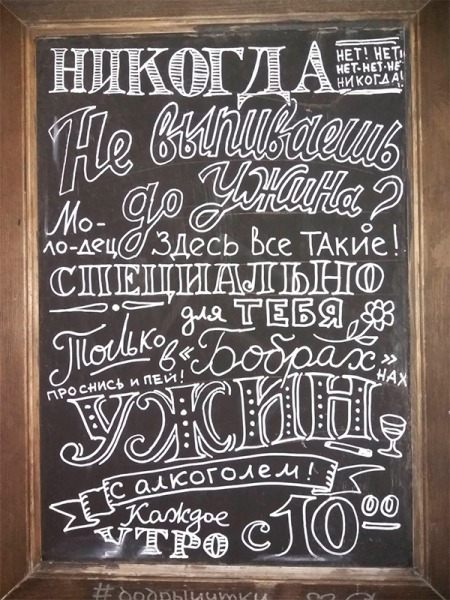 НИКОГДА
НЕТ! НЕТ!
НЕТ-НЕТ-НЕ
НИКОГДА!
Не выпиваешь
до ужина?
Мо-
ло-дец
Здесь все ТАКИЕ!
СПЕЦИАЛЬНО
для ТЕБЯ
Только в «Бобрах»
НАХ
ПРОСНИСЬ И ПЕЙ!
УЖИН
с алкоголем!
Каждое
УТРО с 10 00